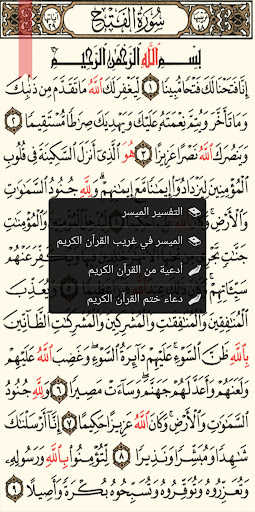 سُورَةُ الْفَتْحِ
بِسْمِ اللَّهِ الرَّحْمَٰنِ الرَّحِيمِ
إِنَّا فَتَحْنَا لَكَ فَتْحًا مُّبِينًا ١ لِّيَغْفِرَ لَكَ اللَّهُ مَا تَقَدَّمَ مِن ذَنۢبِكَ
وَمَا تَأَخَّرَ وَيُتِمَّ نِعْمَتَهُۥ عَلَيْكَ وَيَهْدِيَكَ صِرَٰطًا مُّسْتَقِيمًا ٢
وَيَنصُرَكَ اللَّهُ نَصْرًا عَزِيزًا ٣ هُوَ الَّذِىٓ أَنزَلَ السَّكِينَةَ فِى قُلُوبِ
الْمُؤْمِنِينَ لِيَزْدَادُوٓا۟ إِيمَٰنًا مَّعَ إِيمَٰنِهِمْ وَلِلَّهِ جُنُودُ السَّمَٰوَٰتِ
وَالْأَرْضِ وَالْمُؤْمِنَٰتِ
التفسير الميسر
الميسر في غريب القرآن الكريم
أدعية من القرآن الكريم
دعاء ختم القرآن الكريم
وَيُعَذِّبَ
الْمُنَٰفِقِينَ وَالْمُنَٰفِقَٰتِ وَالْمُشْرِكِينَ وَالْمُشْرِكَٰتِ الظَّآنِّينَ
بِاللَّهِ ظَنَّ السَّوْءِ عَلَيْهِمْ دَآئِرَةُ السَّوْءِ وَغَضِبَ اللَّهُ عَلَيْهِمْ
وَلَعَنَهُمْ وَأَعَدَّ لَهُمْ جَهَنَّمَ وَسَآءَتْ مَصِيرًا ٦ وَلِلَّهِ جُنُودُ
السَّمَٰوَٰتِ وَالْأَرْضِ وَكَانَ اللَّهُ عَزِيزًا حَكِيمًا ٧ إِنَّآ أَرْسَلْنَٰكَ
شَٰهِدًا وَمُبَشِّرًا وَنَذِيرًا ٨ لِّتُؤْمِنُوا۟ بِاللَّهِ وَرَسُولِهِۦ
وَتُعَزِّرُوهُ وَتُوَقِّرُوهُ وَتُسَبِّحُوهُ بُكْرَةً وَأَصِيلًا ٩